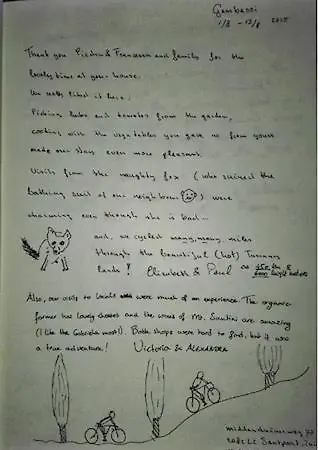 Gambassi
1/8 - 13/8 2015
Thank you Piedro & Francesca and family for the
lovely time at your house.
We really liked it here.
Picking herbs and tomatoes from the garden,
cooking with the vegetables you gave us from yours
made our stay even more pleasant.
Visits from the naughty fox (who ruined the
bathing suit of our neighbour) were
charming even though she is bad...
and, we cycled many, many miles
through the beautiful (hot) Tuscany
lands! Elizabeth & Paul
Also, our visits to locals were much of an experience. The organic
farmer has lovely cheeses and the wines of Mr. Santini are amazing
(I like the Gabriela most!). Both shops were hard to find, but it was
a true adventure! Victoria & Alexandra
Santpoort